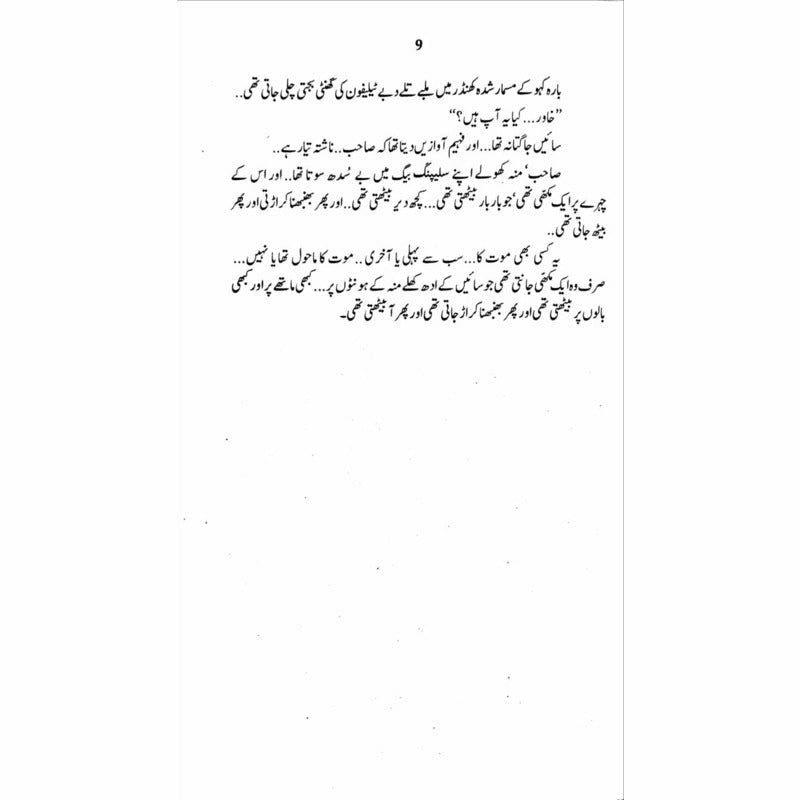 9
بارہ کہو کے مسمار شدہ کھنڈر میں ملبے تلے دبے ٹیلیفون کی گھنٹی بجتی چلی جاتی تھی..
”خاور... کیا یہ آپ ہیں؟“
سائیں جاگتا نہ تھا... اور فہیم آوازیں دیتا تھا کہ صاحب.. ناشتہ تیار ہے..
صاحب‘ منہ کھولے اپنے سلیپنگ بیگ میں بے سُدھ سوتا تھا.. اور اس کے
چہرے پر ایک مکھّی تھی‘ جو بار بار بیٹھتی تھی... کچھ دیر بیٹھتی تھی.. اور پھر بھنبھنا کر اڑتی اور پھر
بیٹھ جاتی تھی..
یہ کسی بھی موت کا... سب سے پہلی یا آخری.. موت کا ماحول تھا یا نہیں...
صرف وہ ایک مکھّی جانتی تھی جو سائیں کے ادھ کھلے منہ کے ہونٹوں پر... کبھی ماتھے پر اور کبھی
بالوں پر بیٹھتی تھی اور پھر بھنبھنا کر اڑ جاتی تھی اور پھر آ بیٹھتی تھی۔